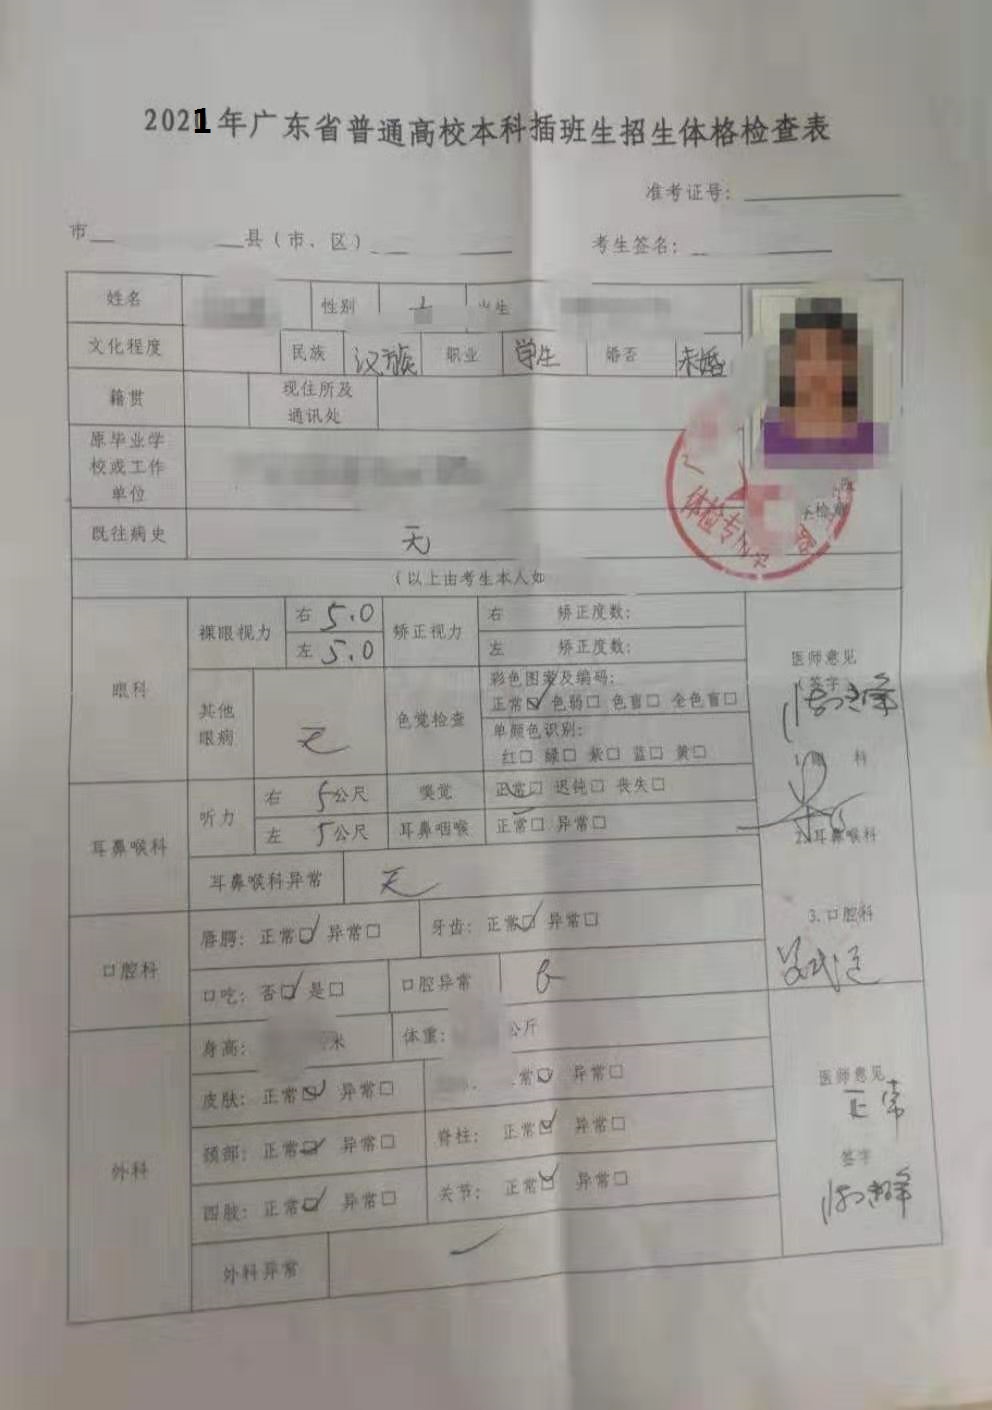 2021年广东省普通高校本科插班生招生体格检查表
准考证号:
市 县(市、区) 考生签名:
姓名 性别 出生
文化程度 民族 汉族 职业 学生 婚否 未婚
籍贯 现住所及通讯处
原毕业学校或工作单位
体检专
既往病史 无
(以上由考生本人如
眼科 裸眼视力 右 5.0 矫正视力 右 矫正度数:
左 5.0 左 矫正度数:
医师意见
(签字)
其他眼病 无 色觉检查 彩色图案及编码:
正常☑ 色弱□ 色盲□ 全色盲□
单颜色识别:
红□ 绿□ 紫□ 蓝□ 黄□
1.眼 科
耳鼻喉科 听力 右 5公尺 嗅觉 正常□ 迟钝□ 丧失□
左 5公尺 耳鼻咽喉 正常□ 异常□
2.耳鼻喉科
耳鼻喉科异常 无
口腔科 唇腭: 正常☑ 异常□ 牙齿: 正常☑ 异常□
3.口腔科
口吃: 否☑ 是□ 口腔异常
外科 身高: 米 体重: 公斤
皮肤: 正常☑ 异常□ 常☑ 异常□
医师意见
正常
颈部: 正常☑ 异常□ 脊柱: 正常☑ 异常□
签字
四肢: 正常☑ 异常□ 关节: 正常☑ 异常□
外科异常